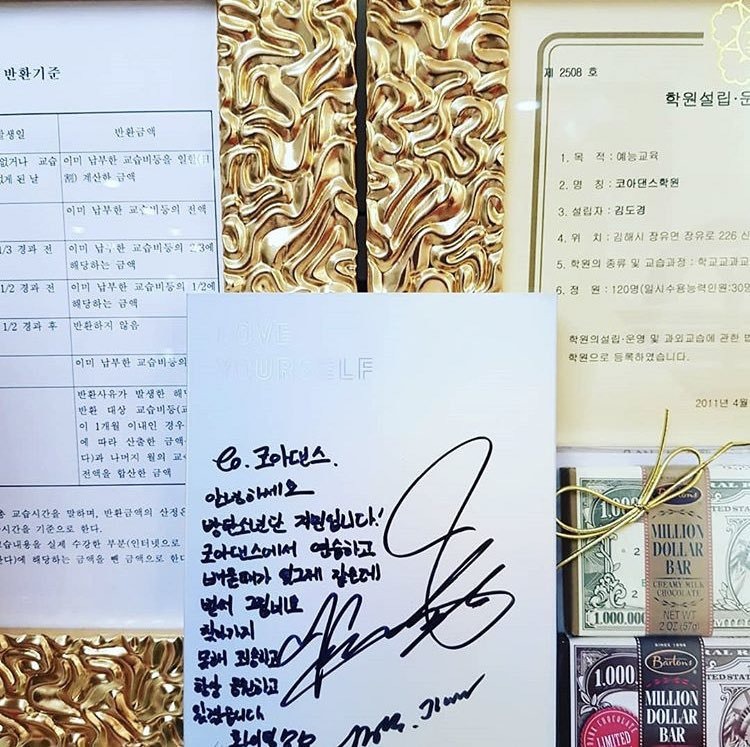 반환기준
발생일 반환금액
없거나 교습 이미 납부한 교습비등을 일할(日
없게 된 날 割) 계산한 금액
이미 납부한 교습비등의 전액
1/3 경과 전 이미 납부한 교습비등의 2/3에
해당하는 금액
1/2 경과 전 이미 납부한 교습비등의 1/2에
해당하는 금액
1/2 경과 후 반환하지 않음
이미 납부한 교습비등의
반환사유가 발생한
반환 대상 교습비등
이 1개월 이내인 경우
에 따라 산출한 금액
다)과 나머지 월의
전액을 합산한 금액
교습시간을 말하며, 반환금액의 산정은
시간을 기준으로 한다.
습내용을 실제 수강한 부분(인터넷으로
에 해당하는 금액을 뺀 금액으로 한다
제 2508 호
학원설립·운
1. 목 적 : 예능교육
2. 명 칭 : 코아댄스학원
3. 설립자 : 김도경
4. 위 치 : 김해시 장유면 장유로 226
5. 학원의 종류 및 교습과정 : 학교교과교
6. 정 원 : 120명(일시수용능력인원:30명
학원의설립·운영 및 과외교습에 관한 법
학원으로 등록하였습니다.
2011년 4월
LOVE
YOURSELF
코아댄스.
안녕하세요
방탄소년단 지민입니다!
코아댄스에서 연습하고
배운때가 엊그제 같은데
벌써 그립네요
찾아가지
못해 죄송하고
항상 응원하고
있겠습니다
화이팅
1,000
Bartons
MILLION
DOLLAR
BAR
CREAMY MILK
CHOCOLATE
NET WT
2 OZ (57g)
1,000,00
SINCE 1938
Bartons
1,000
MILLION
DOLLAR
BAR
LIMITED